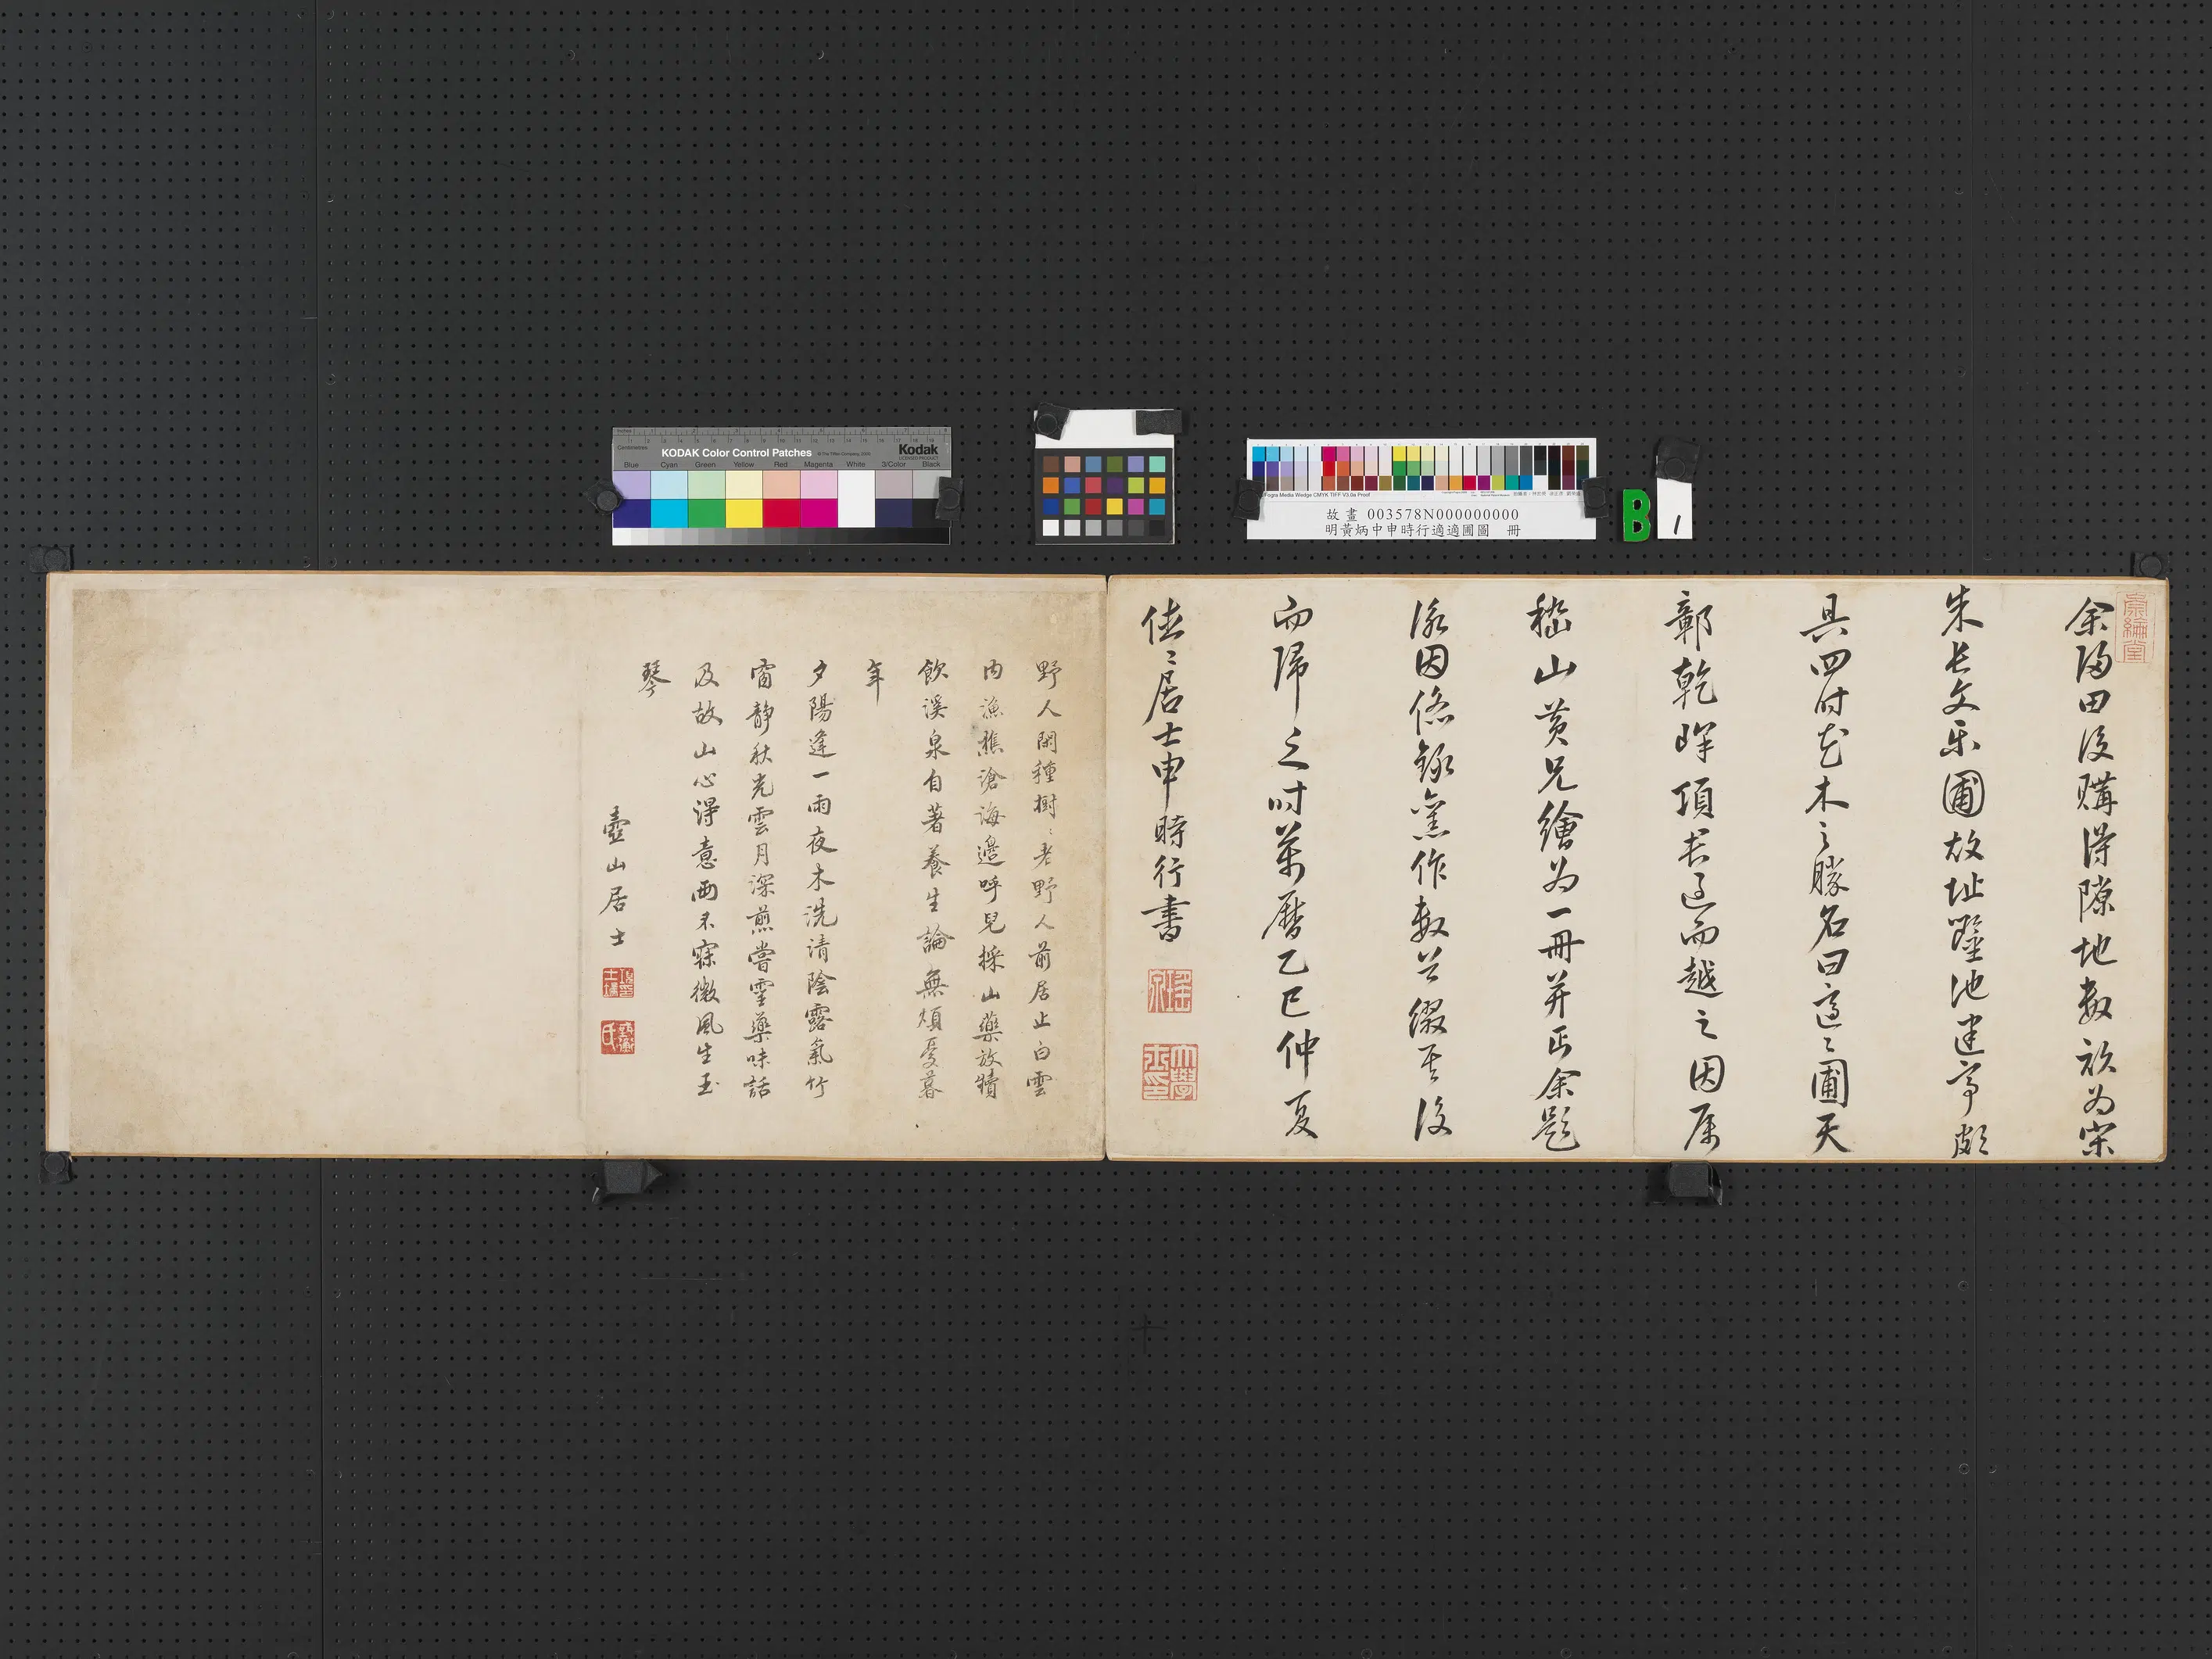 KODAK Color Control Patches
Kodak
LICENSED PRODUCT
Inches
Centimetres
Blue Cyan Green Yellow Red Magenta White 3/Color Black
Fogra Media Wedge CMYK TIFF V3.0a Proof
故畫 003578N000000000
明黃炳中申時行適適圃圖 冊
B
1
余歸田後購得隙地數畝為宋
朱長文樂圃故址鑿池建亭頗
具四時花木之勝名曰適適圃天
嵇山黃兄繪為一冊并丐余題
詠因條錄舊作數首綴其後
而歸之時萬曆乙巳仲夏
休休居士申時行書
野人閑種樹樹老野人前居止白雲
內漁樵滄海邊呼兒採山藥放犢
飲溪泉自著養生論無煩憂暮
年
夕陽逢一雨夜木洗清陰露氣竹
窗靜秋光雲月深煎嘗靈藥味話
及故山心得意兩不寐微風生玉
琴
壺山居士